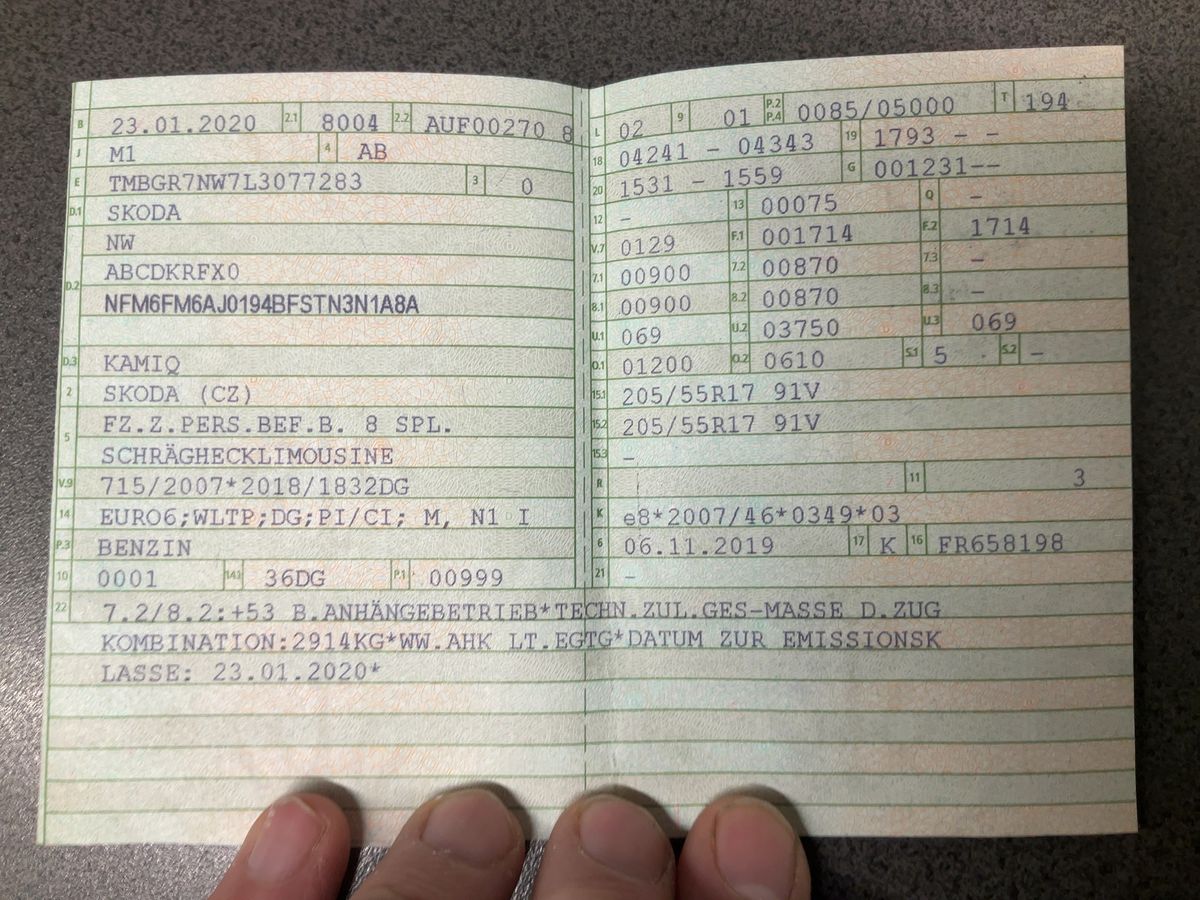 B 23.01.2020 2.1 8004 2.2 AUF00270 8
J M1 4 AB
E TMBGR7NW7L3077283 3 0
D.1 SKODA
NW
D.2 ABCDKRFX0
NFM6FM6AJ0194BFSTN3N1A8A
D.3 KAMIQ
2 SKODA (CZ)
5 FZ.Z.PERS.BEF.B. 8 SPL.
SCHRÄGHECKLIMOUSINE
V.9 715/2007*2018/1832DG
14 EURO6;WLTP;DG;PI/CI; M, N1 I
P.3 BENZIN
10 0001 14.1 36DG P.1 00999
L 02 9 01 P.2 P.4 0085/05000 T 194
18 04241 - 04343 19 1793 - -
20 1531 - 1559 G 001231--
12 - 13 00075 Q -
V.7 0129 F.1 001714 F.2 1714
7.1 00900 7.2 00870 7.3 -
8.1 00900 8.2 00870 8.3 -
U.1 069 U.2 03750 U.3 069
O.1 01200 O.2 0610 S.1 5 S.2 -
15.1 205/55R17 91V
15.2 205/55R17 91V
15.3 -
R 11 3
K e8*2007/46*0349*03
6 06.11.2019 17 K 16 FR658198
21 -
22 7.2/8.2:+53 B.ANHÄNGEBETRIEB*TECHN.ZUL.GES-MASSE D.ZUG
KOMBINATION:2914KG*WW.AHK LT.EGTG*DATUM ZUR EMISSIONSK
LASSE: 23.01.2020*